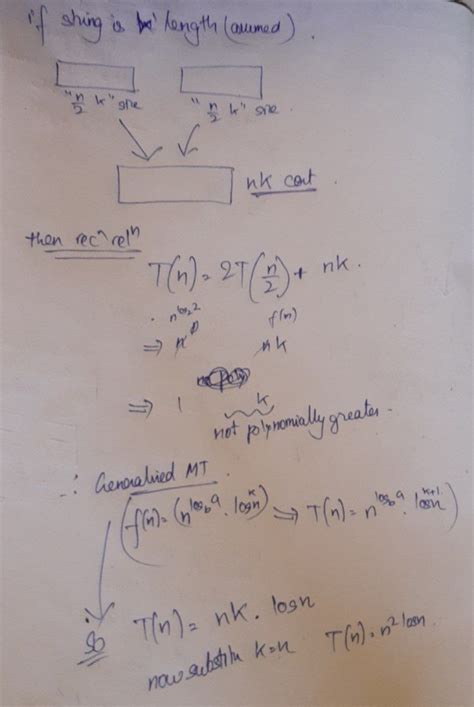 if string is 'k' length (assumed).
"n/2 k" size "n/2 k" size
nk cost.
then recⁿ relⁿ
T(n) = 2T(n/2) + nk.
n^log₂2 f(n)
⇒ n nk
⇒ 1 k
not polynomially greater.
∴ Generalized MT
f(n) = (n^log_b a . log n^k) ⇒ T(n) = n^log_b a . log n^k+1
So T(n) = nk . log n
now substitu k=n T(n) = n² log n.